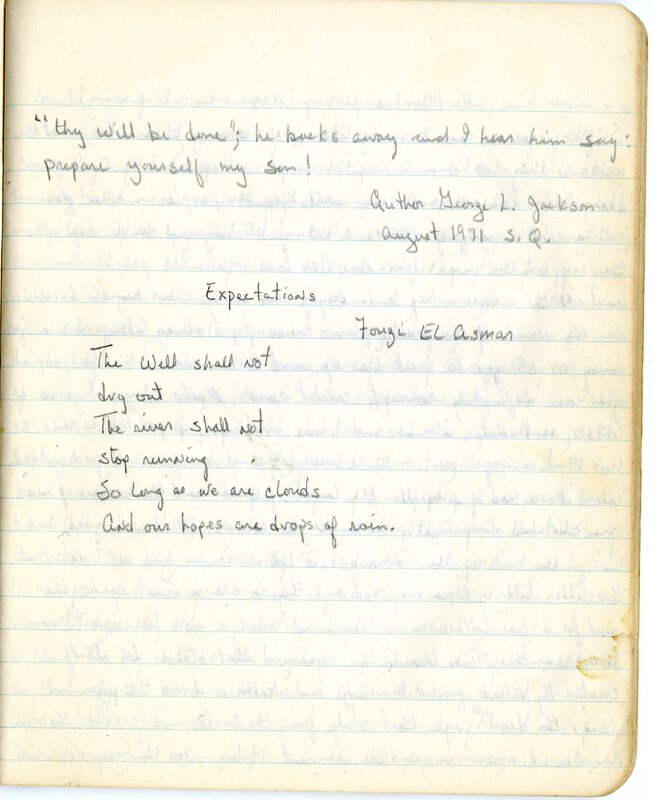 "thy will be done"; he backs away and I hear him say:
prepare yourself my son!
Author George L. Jackson
August 1971 S.Q.
Expectations
Fouzi EL Asmar
The Well shall not
dry out
The river shall not
stop running.
So long as we are clouds
And our hopes are drops of rain.